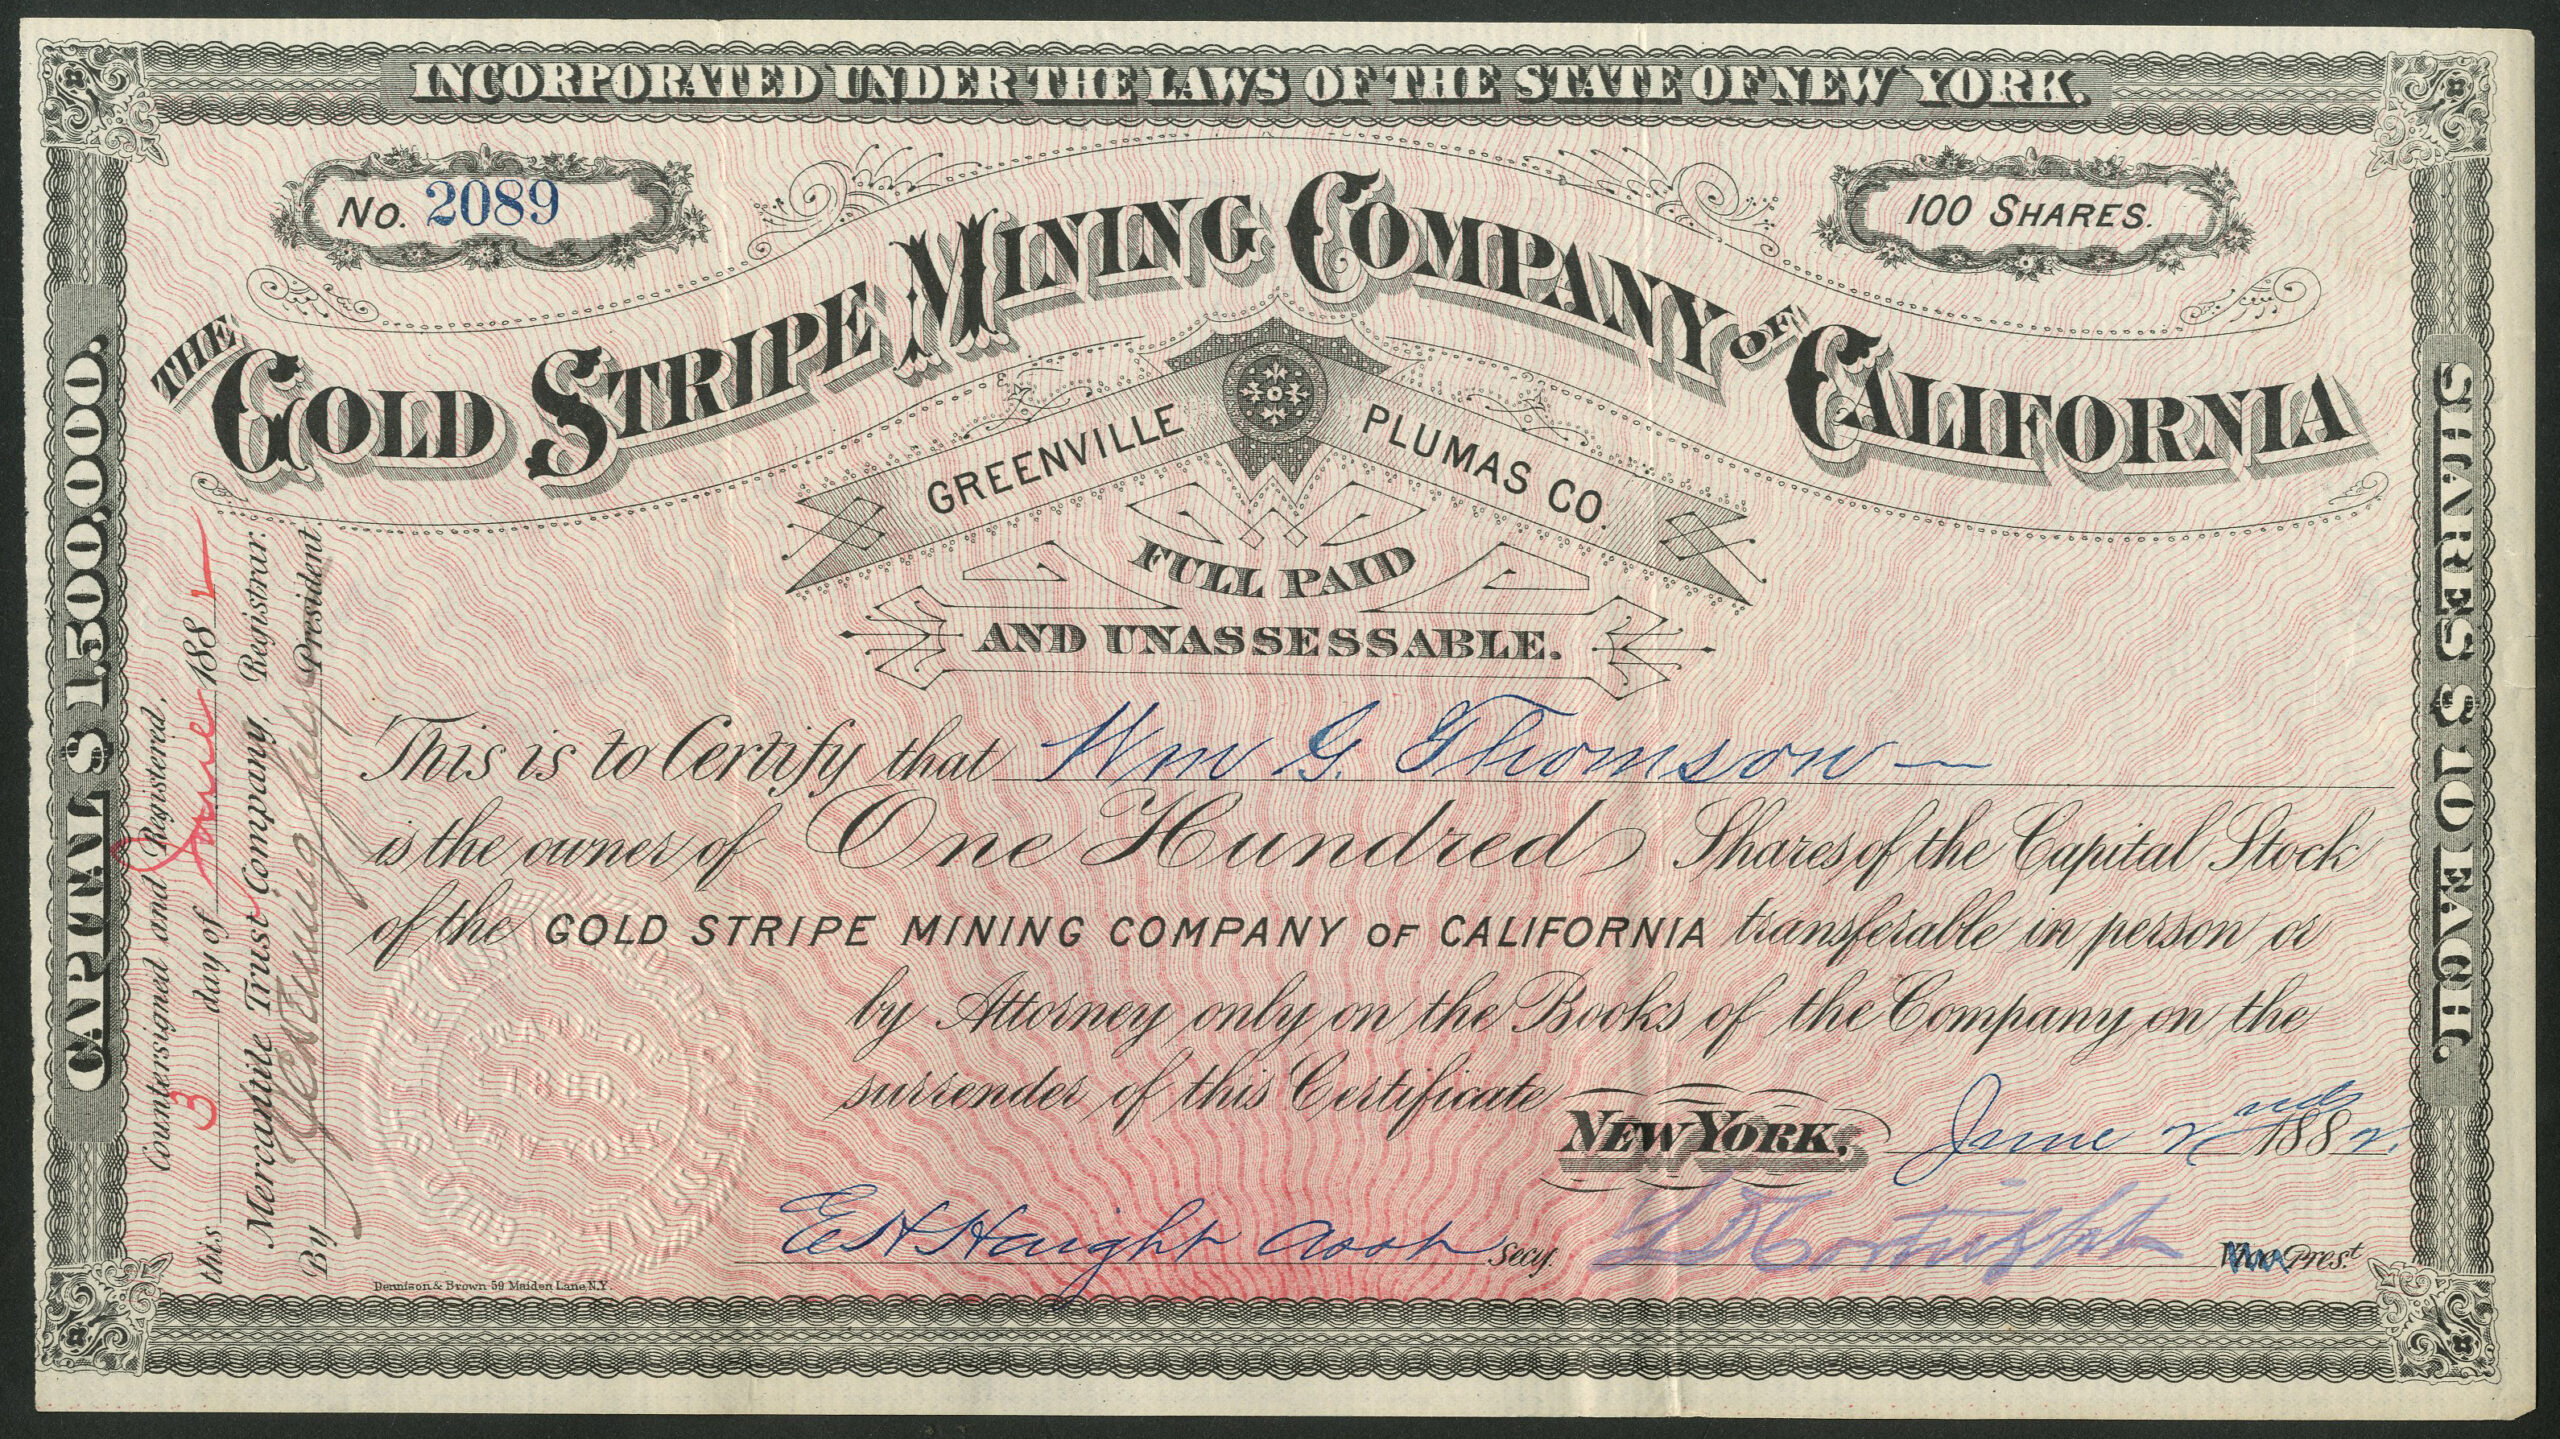 INCORPORATED UNDER THE LAWS OF THE STATE OF NEW YORK.
No. 2089
100 SHARES.
THE GOLD STRIPE MINING COMPANY OF CALIFORNIA
GREENVILLE PLUMAS CO.
FULL PAID
AND UNASSESSABLE.
CAPITAL $1,500,000.
SHARES $10 EACH.
Countersigned and Registered,
this 3 day of June 1882
Mercantile Trust Company, Registrar.
By President
This is to Certify that Wm G. Thomson
is the owner of One Hundred Shares of the Capital Stock
of the GOLD STRIPE MINING COMPANY OF CALIFORNIA transferable in person or
by Attorney only on the Books of the Company on the
surrender of this Certificate
NEW YORK, June 2nd 1882.
STATE OF
1880.
NEW YORK
E H Haight Asst Secy.
Prest
Dennison & Brown 59 Maiden Lane, N.Y.